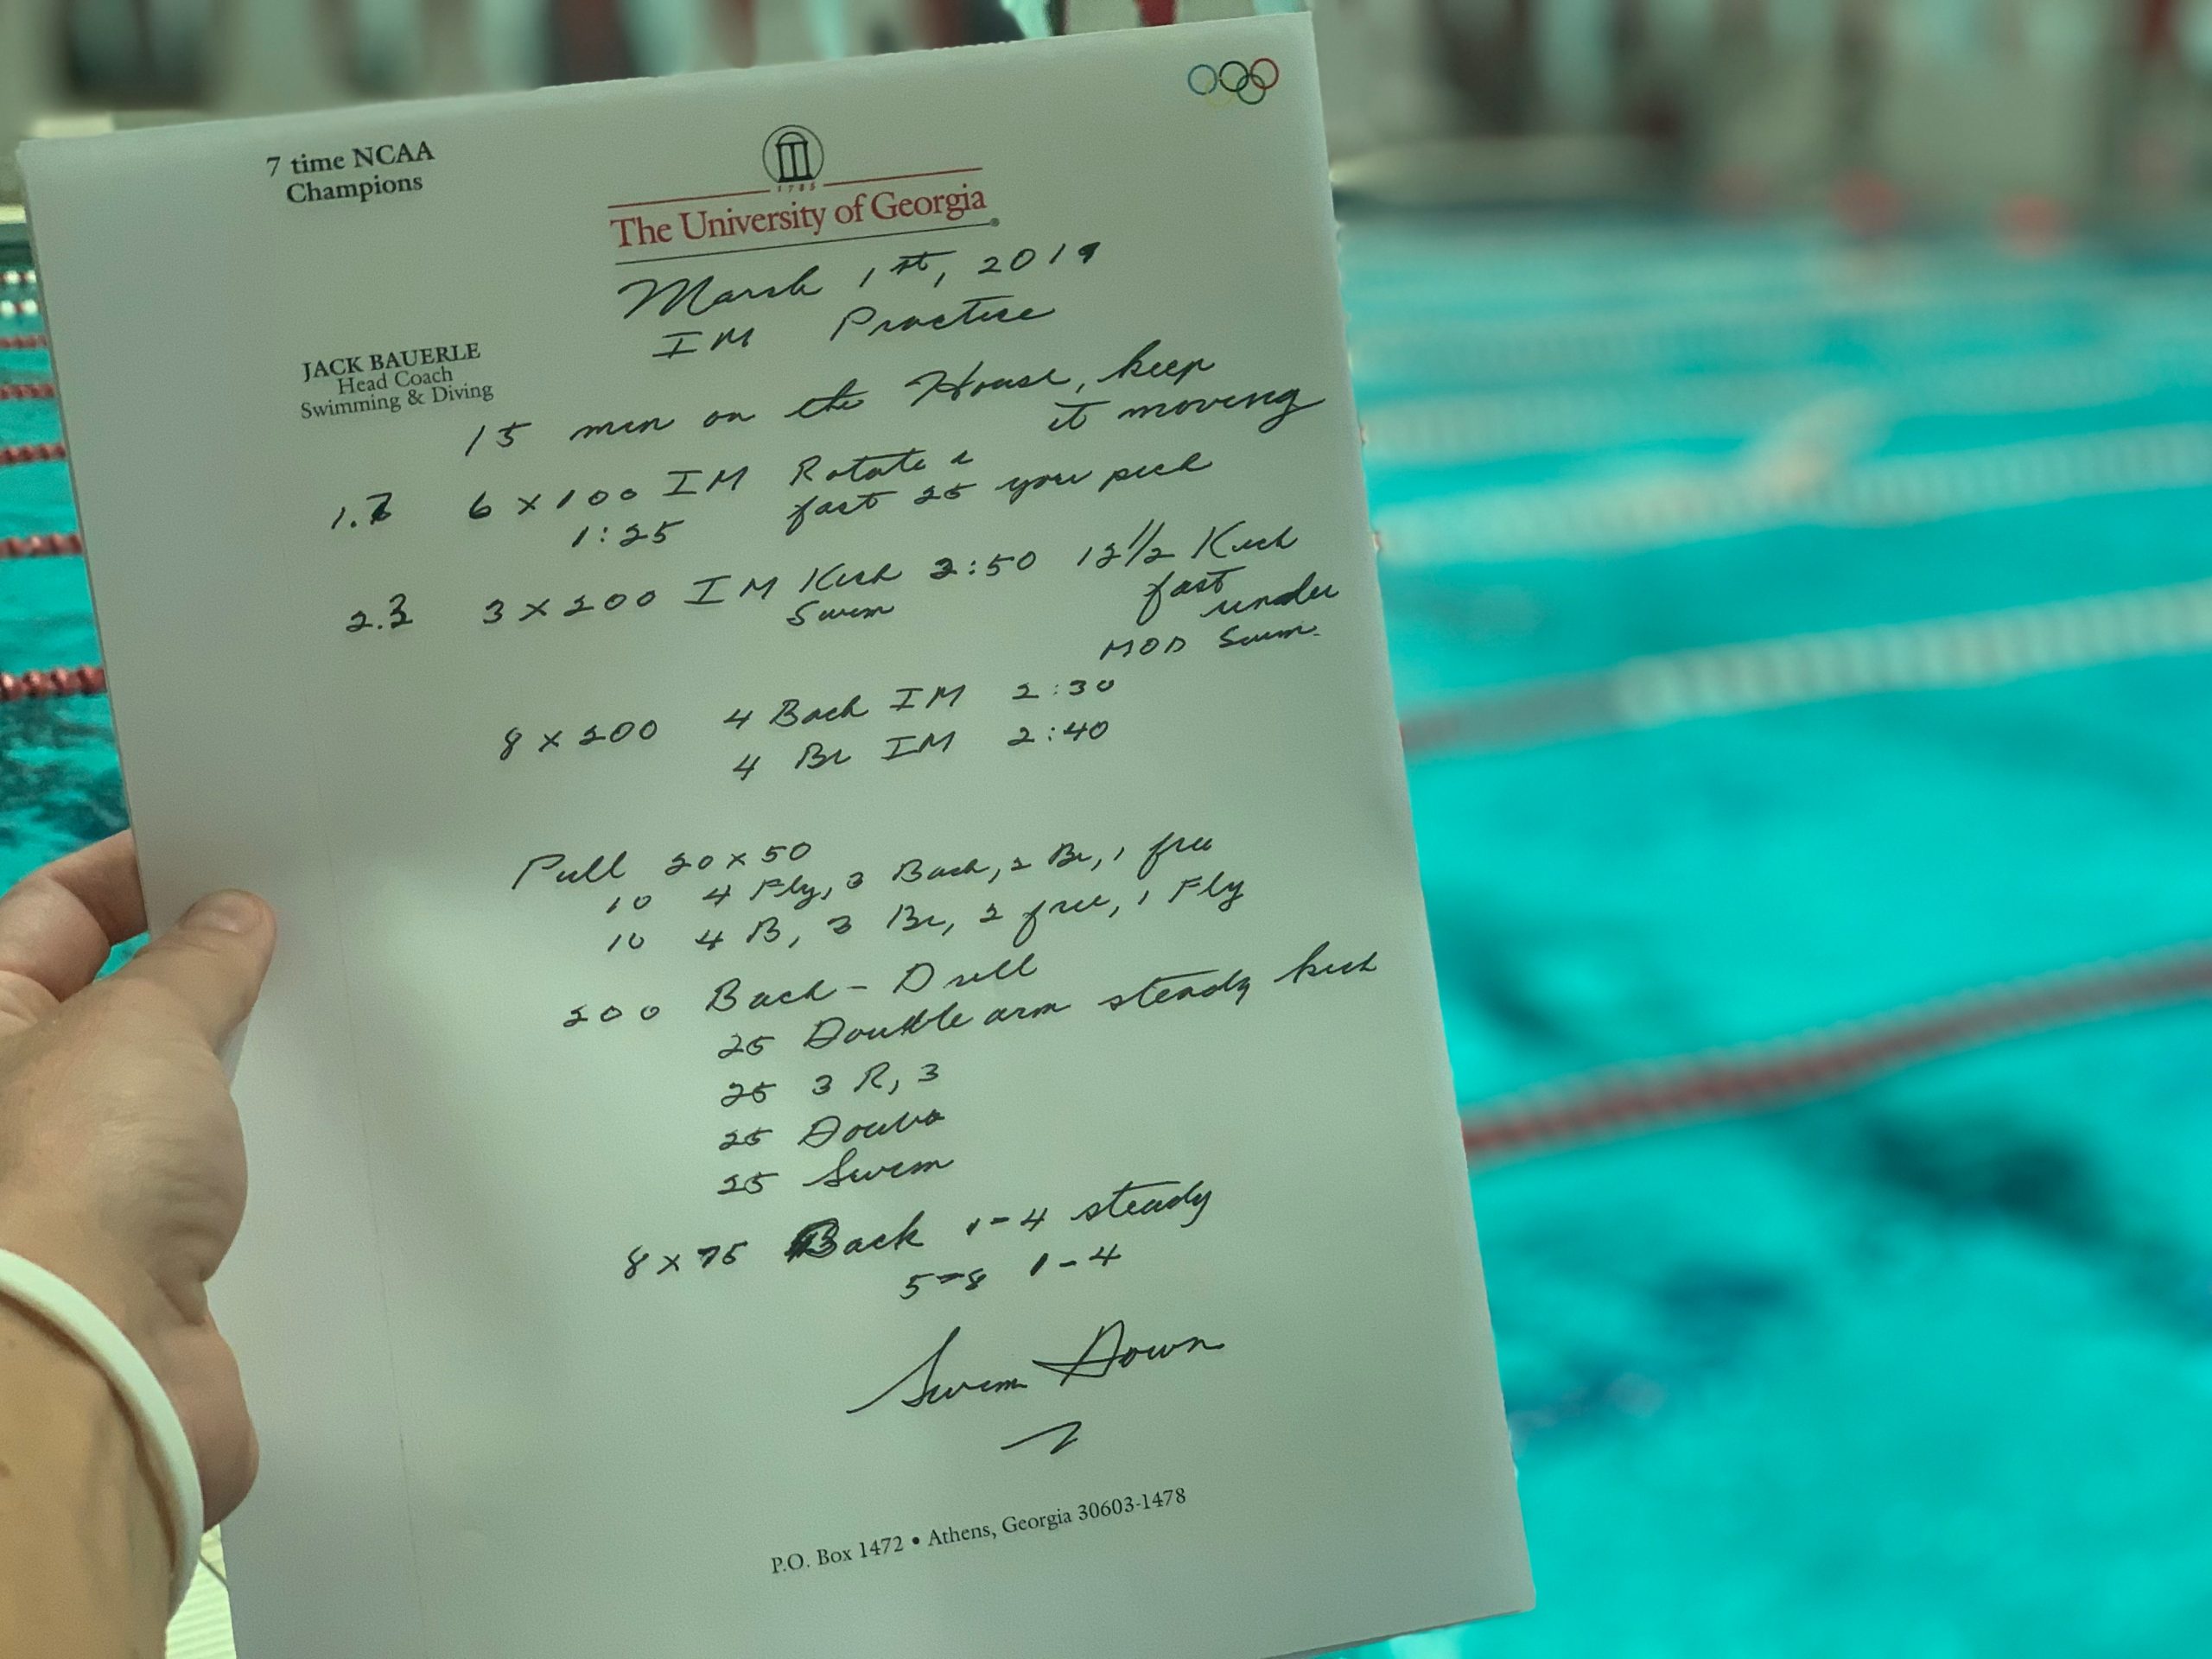 7 time NCAA
Champions
1785
The University of Georgia
March 1st, 2019
IM Practice
JACK BAUERLE
Head Coach
Swimming & Diving
15 min on the House, keep
it moving
6 x 100 IM Rotate
1:25 fast 25 you pick
3 x 200 IM Kick 2:50 12 1/2 Kick
Swim fast
under
MOD Swim.
8 x 200 4 Back IM 2:30
4 Br IM 2:40
Pull 20 x 50
10 4 Fly, 3 Back, 2 Br, 1 free
10 4 B, 3 Br, 2 free, 1 Fly
200 Back - Drill
25 Double arm steady kick
25 3 R, 3
25
25 Swim
8 x 75 Back 1-4 steady
5-8 1-4
Swim Down
P.O. Box 1472 • Athens, Georgia 30603-1478